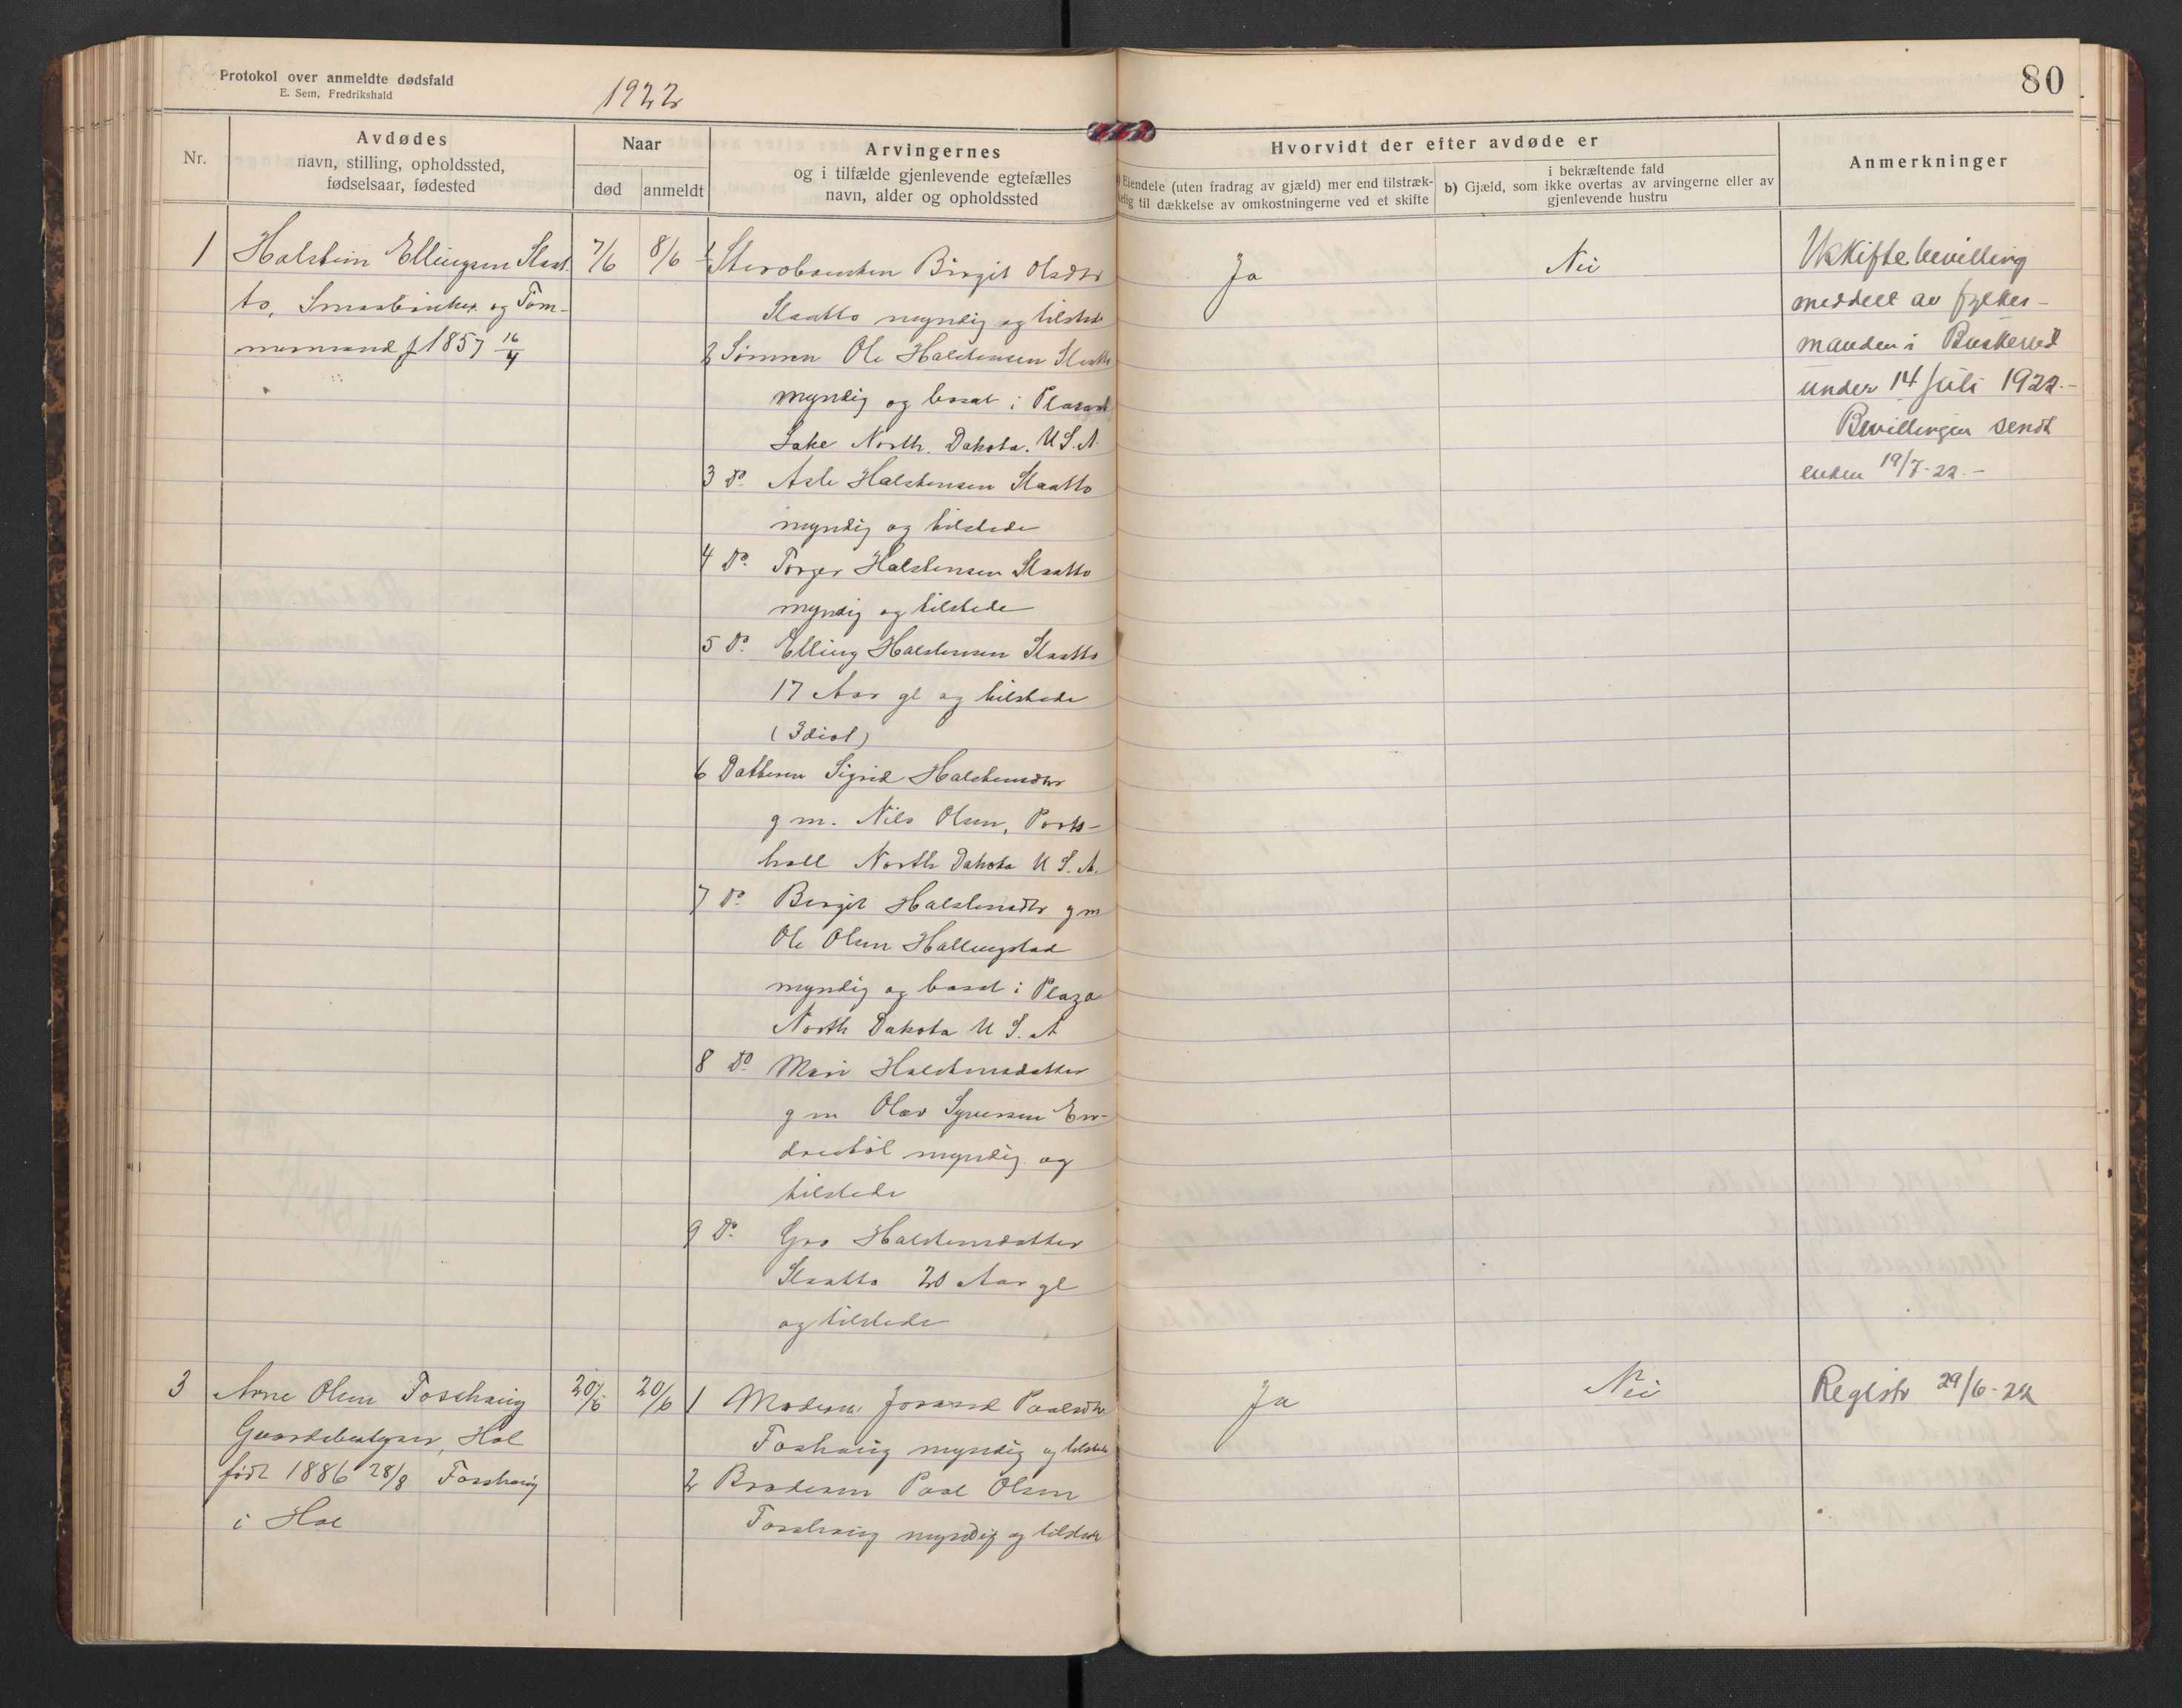 Protokol over anmeldte dødsfald
E. Sem, Fredrikshald
1922
80
Nr.
Avdødes
navn, stilling, opholdssted,
fødselsaar, fødested
Naar
død
anmeldt
Arvingernes
og i tilfælde gjenlevende egtefælles
navn, alder og opholdssted
Hvorvidt der efter avdøde er
Eiendele (uten fradrag av gjæld) mer end tilstræk-
kelig til dækkelse av omkostningerne ved et skifte
i bekræftende fald
b) Gjæld, som ikke overtas av arvingerne eller av
gjenlevende hustru
Anmerkninger
1
Halstein Ellingsen Slaat-
to, Smaabruker og Tøm-
mermand f 1857 16/4
7/6
8/6
1 Sterboenken Birgit Olsdtr
Slaatto myndig og tilstede
2 Sønnen Ole Halstensen Slaatto
myndig og bosat i
Lake North. Dakota. U.S.A.
3 Do Asle Halstensen Slaatto
myndig og tilstede
4 Do Torger Halstensen Slaatto
myndig og tilstede
5 Do Elling Halstensen Slaatto
17 Aar gl og tilstede
(Idiot)
6 Datteren Sigrid Halstensdtr
g m. Nils Olsen, Ports-
hall North Dakota U S. A.
7 Do Birgit Halstensdtr g m
Ole Olsen Hallingstad
myndig og bosat i Plaza
North Dakota U S. A
8 Do Mari Halstensdatter
g m Olav Syversen En-
drestøl myndig og
tilstede
9 Do Gro Halstensdatter
Slaatto 20 Aar gl
og tilstede
Ja
Nei
Uskiftebevilling
meddelt av fylkes-
manden i Buskerud
under 14 juli 1922.-
Bevillingen sendt
enken 19/7-22.-
3
Arne Olsen Fosshaug
Gaardsbestyrer, Hol
født 1886 28/8 Fosshaug
i Hol
20/6
20/6
1 Moderen Jorand Paalsdtr
Foshaug myndig og tilstede
2 Broderen Paal Olsen
Fosshaug myndig og tilstede
Ja
Nei
Registr 29/6-22